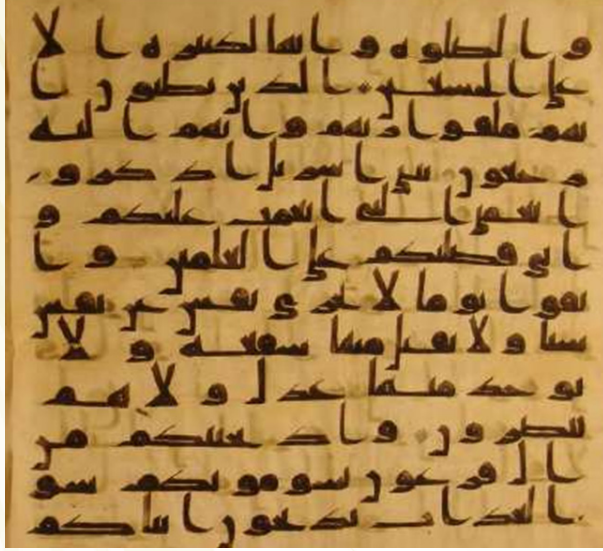 والصلوه وانها لكبيره الا
على الخشعين الذين يظنون ا
نهم ملقوا ربهم وانهم اليه
رجعون يبني اسريل اذكرو
ا نعمتي التي انعمت عليكم و
اني فضلتكم على العلمين وا
تقوا يوما لا تجزي نفس عن نفس
شيا ولا يقبل منها شفعه ولا
يوخذ منها عدل ولا هم
ينصرون واذ نجينكم من
ال فرعون يسومونكم سو
العذاب يذبحون ابناكم